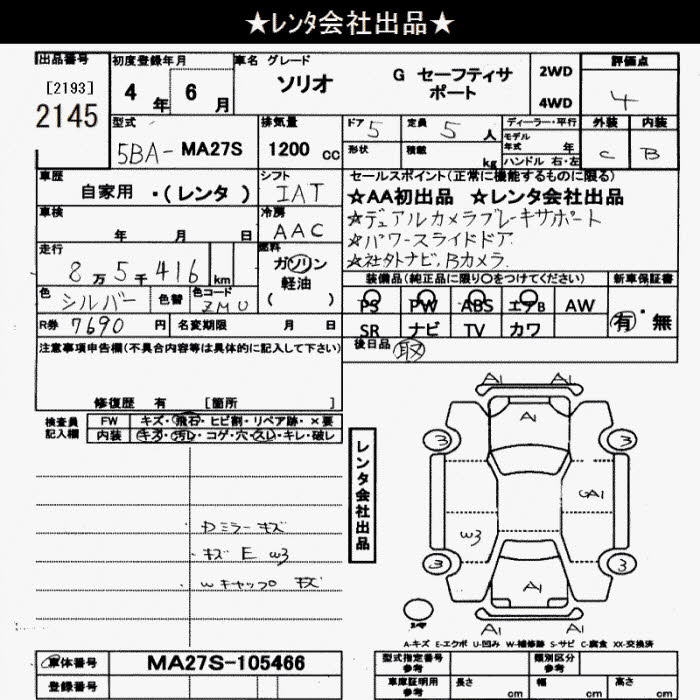 ★レンタ会社出品★
出品番号 初度登録年月 車名 グレード 評価点
[2193] 4 年 6 月 ソリオ G セーフティサポート 2WD 4WD 4
2145
型式 排気量 ドア 5 定員 5 人 ディーラー・平行 外装 内装
5BA- MA27S 1200 cc 形状 積載 kg モデル年式 年 C B
ハンドル 右・左
車歴 シフト セールスポイント(正常に機能するものに限る)
自家用 ・(レンタ) IAT ★AA初出品 ★レンタ会社出品
車検 冷房 ☆デュアルカメラブレーキサポート
年 月 日 AAC ☆パワースライドドア
走行 燃料 ☆社外ナビ,Bカメラ
8万5千416 km ガソリン 装備品(純正品に限り〇をつけてください) 新車保証書
軽油
( )
色 シルバー 色替 色コード ZMU PS PW ABS エアB AW 有・無
R券 7690 円 名変期限 月 日 SR ナビ TV カワ
注意事項申告欄(不具合内容等は具体的に記入して下さい) 後日品 取
修復歴 有 [箇所 ]
検査員記入欄 FW キズ・飛石・ヒビ割・リペア跡・×要
内装 キズ・汚レ・コゲ・穴・スレ・キレ・破レ
レンタ会社出品
A1 A1
A1
3 3
GA1
Dミラー キズ
キズ E W3 W3
3 3
Wキャップ キズ A1
A1 A1
A-キズ E-エクボ U-凹み W-補修跡 S-サビ C-腐食 XX-交換済
車体番号 MA27S-105466 型式指定番号 参考 類別区分 参考
登録番号 車庫証明用 参考 長さ cm 幅 cm 高さ cm